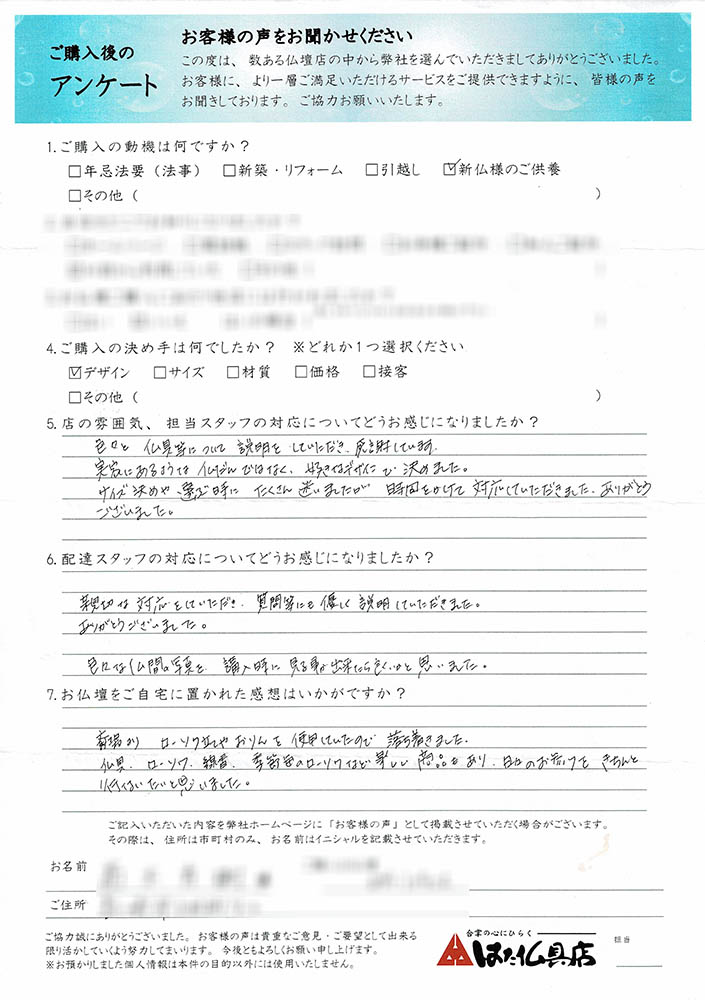 ご購入後の
アンケート
お客様の声をお聞かせください
この度は、数ある仏壇店の中から弊社を選んでいただきましてありがとうございました。
お客様に、より一層ご満足いただけるサービスをご提供できますように、皆様の声を
お聞きしております。ご協力お願いいたします。
1.ご購入の動機は何ですか？
□年忌法要（法事） □新築・リフォーム □引越し ☑新仏様のご供養
□その他（ ）
4.ご購入の決め手は何でしたか？ ※どれか1つ選択ください
☑デザイン □サイズ □材質 □価格 □接客
□その他（ ）
5.店の雰囲気、担当スタッフの対応についてどうお感じになりましたか？
色々と 仏具等について 説明をしていただき、感謝しています。
実家にあるような 仏だんではなく、好きなデザインで 決めました。
サイズ決めや 選ぶ時に たくさん 迷いましたが 時間をかけて 対応していただきました。ありがとう
ございました。
6.配達スタッフの対応についてどうお感じになりましたか？
親切な 対応をしていただき、質問等にも優しく 説明していただきました。
ありがとうございました。
色々な仏間の写真を 購入時に 見る事が出来たら良いかと 思いました。
7.お仏壇をご自宅に置かれた感想はいかがですか？
ローソク立てや おりんを 使用していたので 落ち着きました。
仏具、ローソク、線香、季節毎のローソクなど 楽しい 商品もあり、日々のお参りを きちんと
行いたいと思いました。
ご記入いただいた内容を弊社ホームページに「お客様の声」として掲載させていただく場合がございます。
その際は、住所は市町村のみ、お名前はイニシャルを記載させていただきます。
お名前
ご住所
ご協力誠にありがとうございました。お客様の声は貴重なご意見・ご要望として出来る
限り活かしていくよう努力してまいります。今後ともよろしくお願い申し上げます。
※お預かりしました個人情報は本件の目的以外には使用いたしません。
合掌の心にひらく
はた仏具店
担当